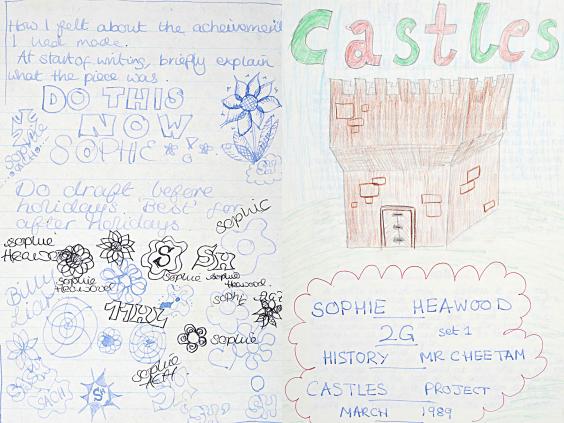 How I felt about the acheivement
I had made.
At start of writing, briefly explain
what the piece was.
DO THIS
NOW
SOPHIE
SH
Do draft before
holidays 'Best' for
after holidays
sophie
sophie
Heawood
S
SH
Sophie
Heawood
Sophie
Heawood
Billy
Liar
sophie
sophie
sophie
SH
SH
Castles
SOPHIE HEAWOOD
2G set 1
HISTORY MR CHEETAM
CASTLES PROJECT
MARCH 1989